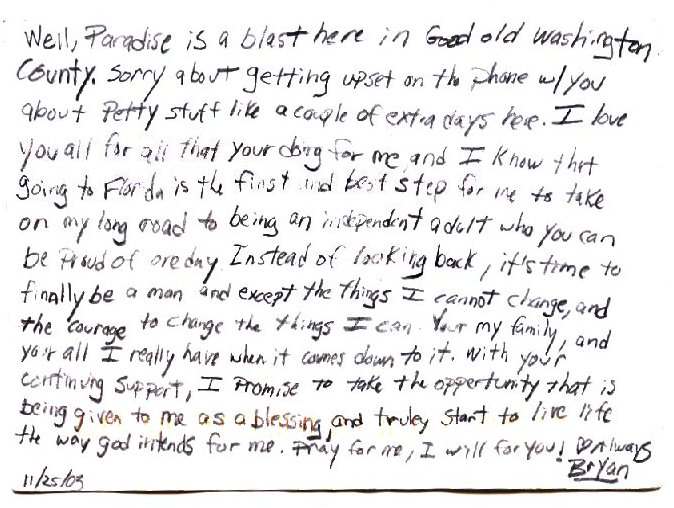 Well, Paradise is a blast here in Good old Washington
County. Sorry about getting upset on the phone w/ you
about Petty stuff like a couple of extra days here. I love
you all for all that your doing for me, and I know that
going to Florida is the first and best step for me to take
on my long road to being an independent adult who you can
be Proud of one day Instead of looking back, it's time to
finally be a man and except the things I cannot change, and
the courage to change the things I can. Your my family, and
your all I really have when it comes down to it. With your
continuing support, I Promise to take the opportunity that is
being given to me as a blessing, and truley start to live life
the way god intends for me. Pray for me, I will for you! ♡ Always
Bryan
11/25/03